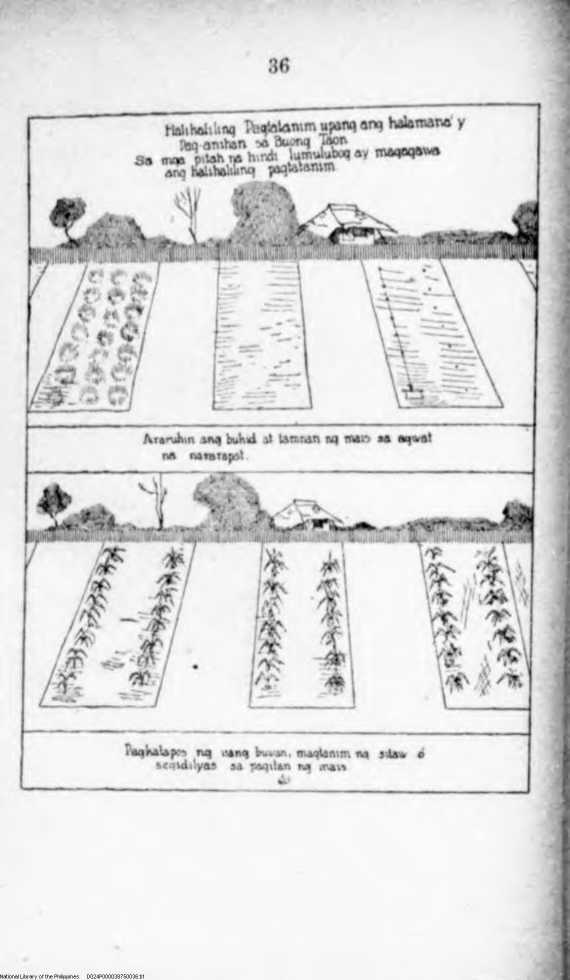 36
Halihaliling Pagtatanim upang ang halamana'y
Pag-anihan sa Buong Taon
Sa mga pitak na hindi lumulubog ay magagawa
ang halihaliling pagtatanim.
Araruhin ang buhid at tamnan ng mais sa agwat
na nararapat.
Pagkatapos ng isang buwan, magtanim ng sitaw ó
segidilyas sa pagitan ng mais
National Library of the Philippines